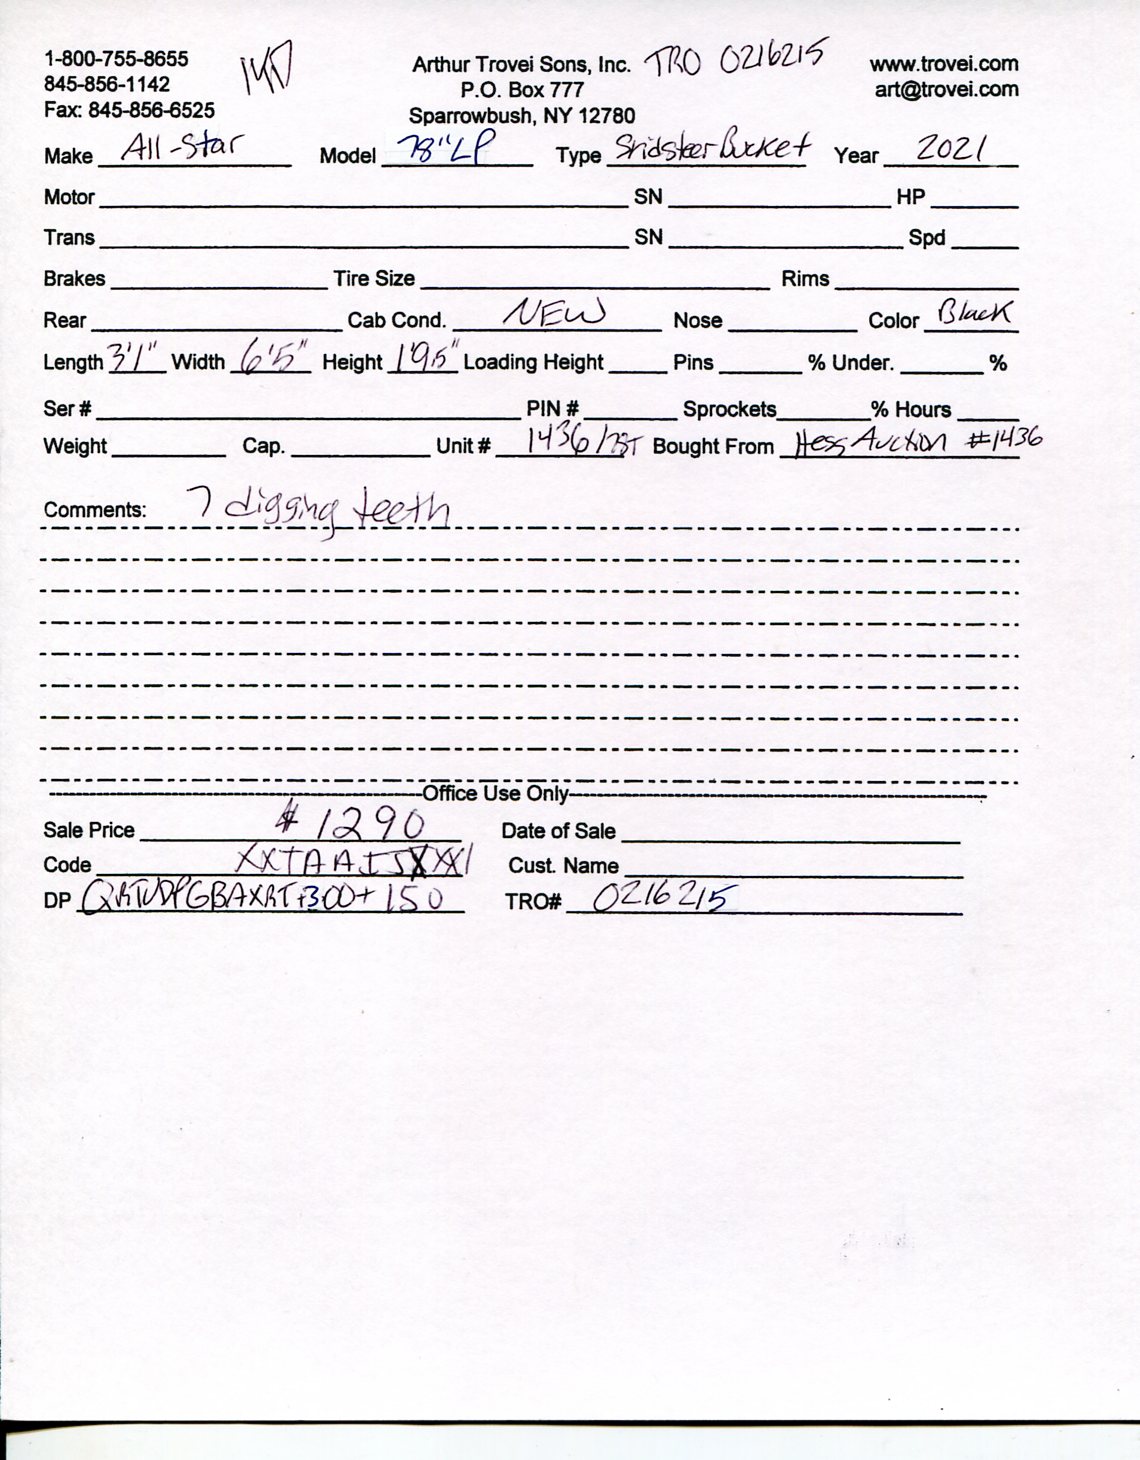 1-800-755-8655
845-856-1142
Fax: 845-856-6525
Arthur Trovei Sons, Inc. TRO 0216215
P.O. Box 777
Sparrowbush, NY 12780
www.trovei.com
art@trovei.com
Make All-Star Model 78"LP Type Skidsteer Bucket Year 2021
Motor SN HP
Trans SN Spd
Brakes Tire Size Rims
Rear Cab Cond. NEW Nose Color Black
Length 3'1" Width 6'5" Height 1'9.5" Loading Height Pins % Under. %
Ser # PIN # Sprockets % Hours
Weight Cap. Unit # 1436 Bought From Hess Auction #1436
Comments: 7 digging teeth
Office Use Only
Sale Price $1290 Date of Sale
Code Cust. Name
DP TRO# 0216215